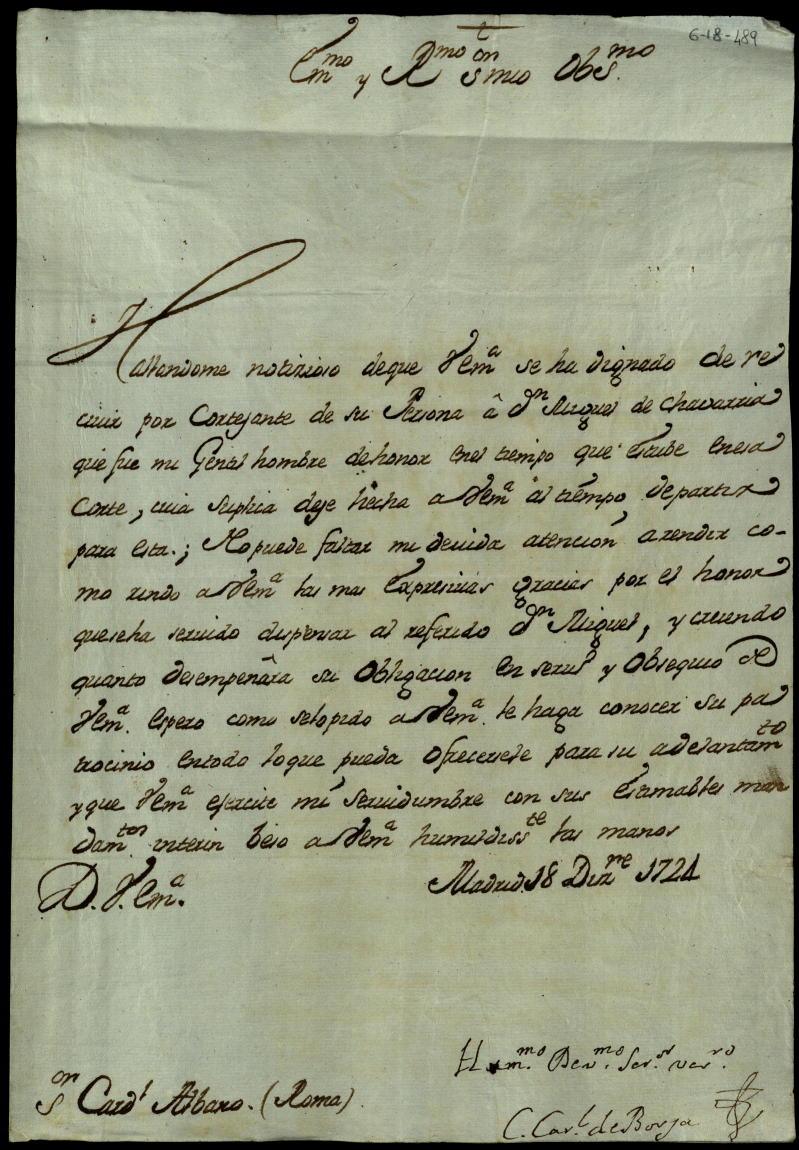 6-18-489
Em.mo y R.mo S.or mio Obs.mo
Hallandome notizioso deque VEm.a se ha dignado de re
civir por Cortejante de su Persona â D.n Miguel de Chavarria
que fue mi Gentil hombre de honor enel tiempo que estube enesa
Corte, cuia suplica deje hecha a VEm.a al tiempo departir
para esta.; No puede faltar mi devida atencion arendir co-
mo rindo a VEm.a las mas Expresivas gracias por el honor
queseha servido dispensar al referido D.n Miguel, y creiendo
quanto desempeñara su Obligacion en serv.o y Obsequio de
VEm.a espero como selopido a VEm.a le haga conocer su pa
trocinio entodo loque pueda Ofrecersele para su adelantam.to
yque VEm.a ejercite mi servidumbre con sus estimables man
dam.tos interin beso a VEm.a humildiss.te las manos
Madrid 18 Diz.re 1724
D. V. Em.a
H.mo Dev.mo Ser.or ver.ro
S.or Card.l Albano. (Roma).
C. Car.l de Borja